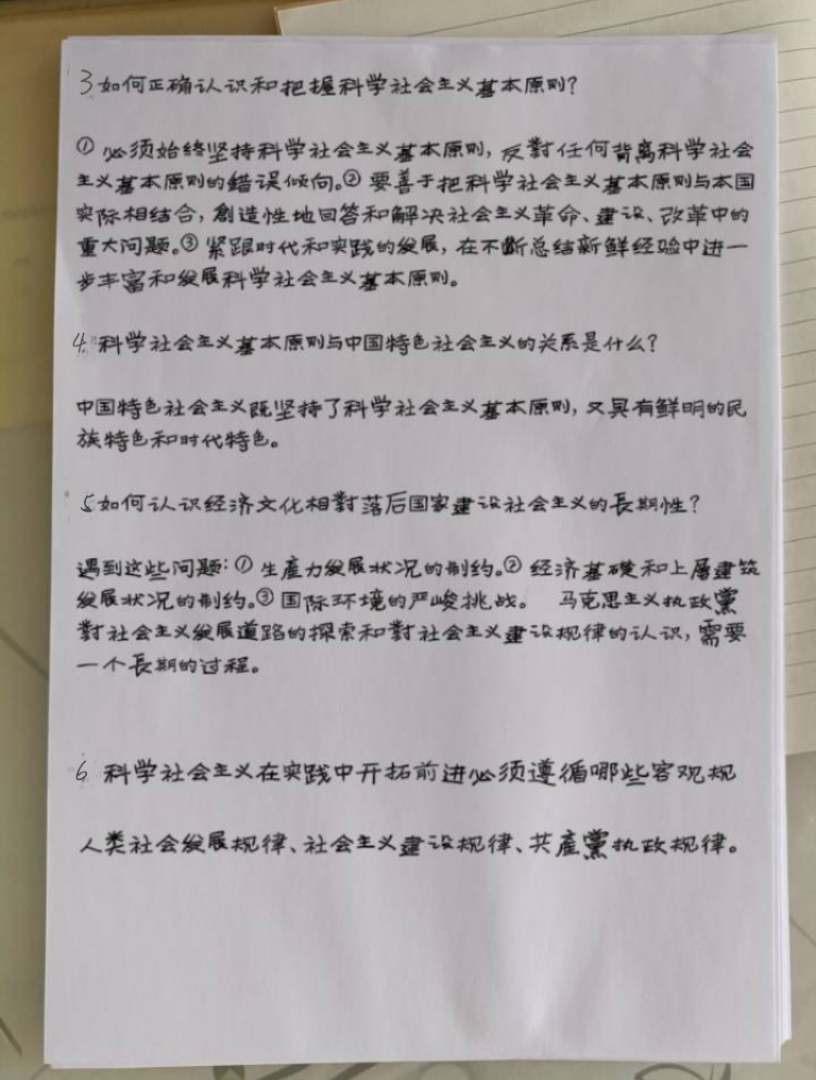 3 如何正确认识和把握科学社会主义基本原则?
① 必须始终坚持科学社会主义基本原则,反對任何背离科学社会
主义基本原则的錯误倾向。② 要善于把科学社会主义基本原则与本国
实际相结合,創造性地回答和解决社会主义革命、建设、改革中的
重大问题。③ 紧跟时代和实践的发展,在不斷总结新鲜经验中进一
步丰富和发展科学社会主义基本原则。
4. 科学社会主义基本原则与中国特色社会主义的关系是什么?
中国特色社会主义既坚持了科学社会主义基本原则,又具有鲜明的民
族特色和时代特色。
5 如何认识经济文化相對落后国家建设社会主义的長期性?
遇到这些问题:① 生產力发展状况的制约。② 经济基礎和上層建筑
发展状况的制约。③ 国际环境的严峻挑战。 马克思主义执政黨
對社会主义发展道路的探索和對社会主义建设规律的认识,需要
一个長期的过程。
6 科学社会主义在实践中开拓前进必须遵循哪些客观规
人类社会发展规律、社会主义建设规律、共產黨执政规律。